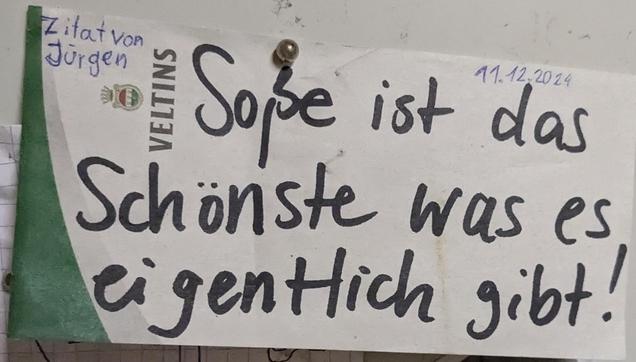 Zitat von
Jürgen
VELTINS
11.12.2024
Soße ist das
Schönste was es
eigentlich gibt!